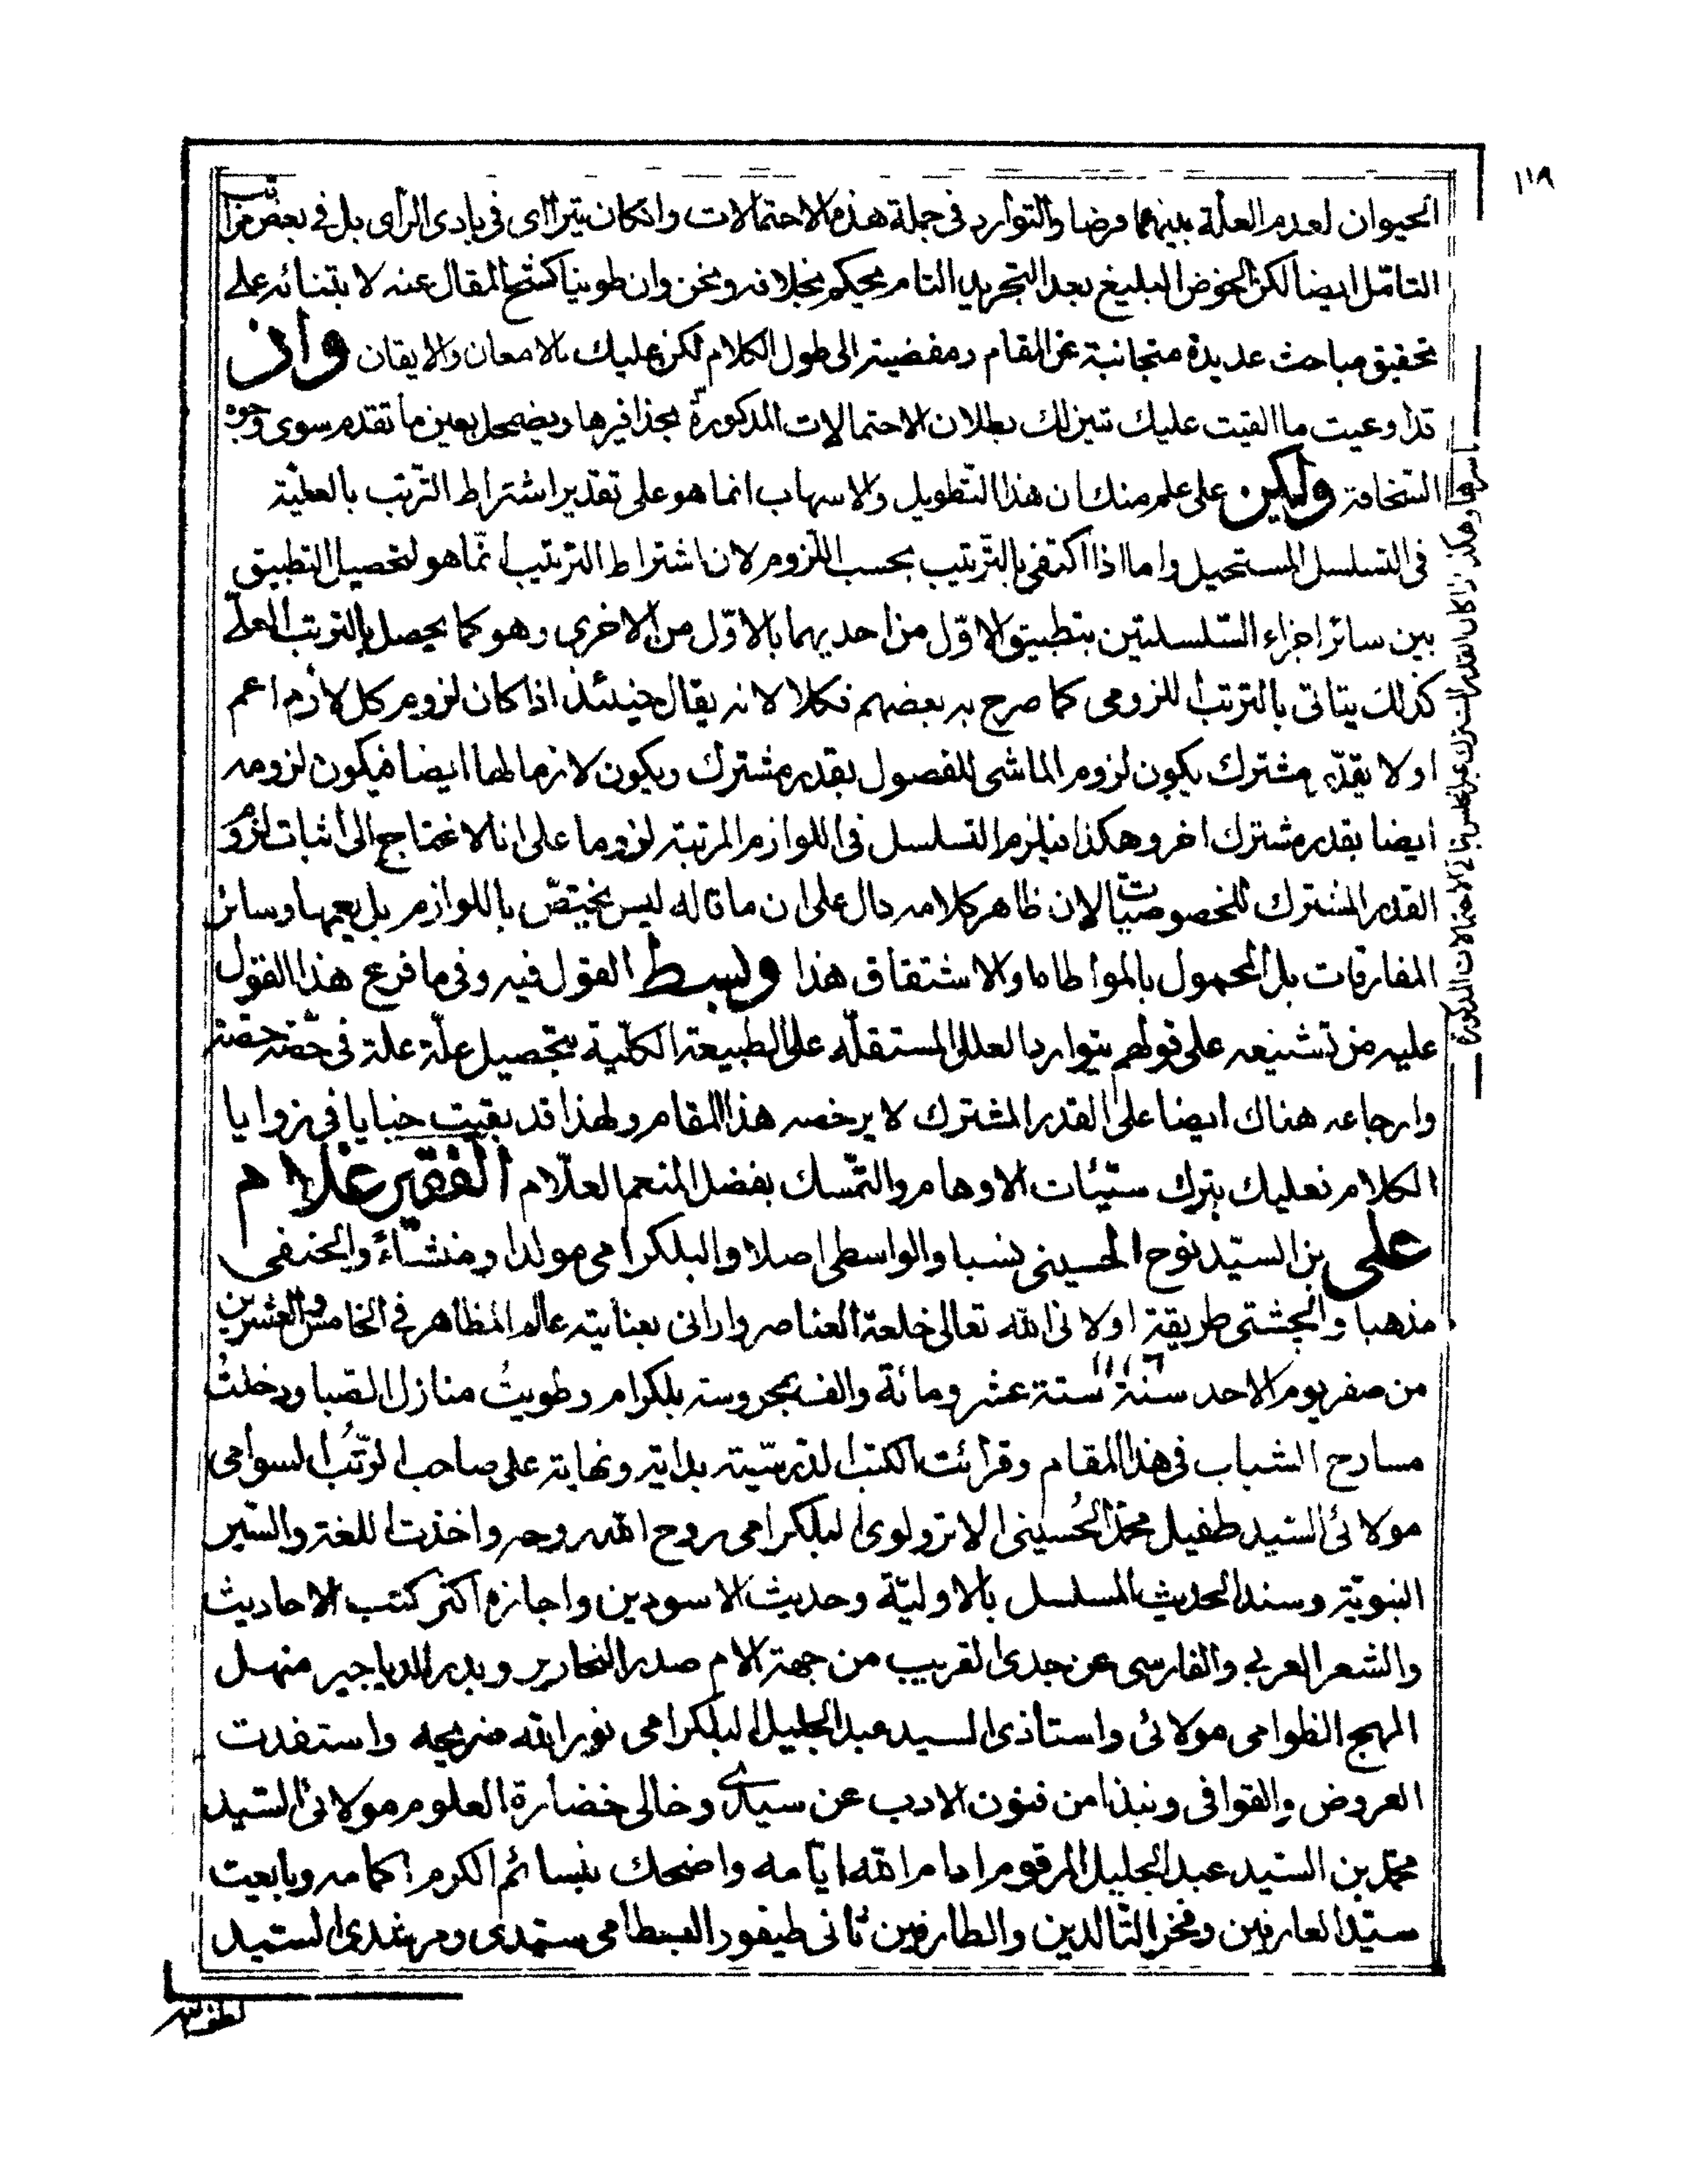 ١١٩
الحيوان لعدم العلة بينهما فرضا والتوارد فى جملة هذه الاحتمالات وانكان يتراأى فى بادى الرأى بل فے بعض مراتب
التامّل ايضا لكن الخوض البليغ بعد التجريد التام يحكم بخلافه ونحن وان طوينا كشح المقال عنه لا بتنائه على
تحقيق مباحث عديدة متجانبة عن المقام ومفضية الى طول الكلام لكن عليك بالامعان والايقان وان
قد اوعيت ما القيت عليك تبين لك بطلان الاحتمالات المذكورة بحذافيرها ويضمحل بعين ما تقدم سوى وجوه
السخافة وليكن على علم منك ان هذا التطويل والاسهاب انما هو على تقدير اشتراط الترتب بالعلية
فى التسلسل المستحيل واما اذا اكتفى بالترتيب بحسب اللزوم لان اشتراط الترتيب انّما هو لتحصيل التطبيق
بين سائر اجزاء السّلسلتين بتطبيق الاوّل من احديهما بالاوّل من الاخرى وهو كما يحصل بالترتب العلّے
كذلك يتاتى بالترتب اللزومى كما صرح به بعضهم فكلا لانه يقال حينئذ اذا كان لزوم كل لازم اعم
اولا بقدر مشترك يكون لزوم الماشى للفصول بقدر مشترك ويكون لازما لها ايضا فيكون لزومه
ايضا بقدر مشترك اخر وهكذا فيلزم التسلسل فى اللوازم المرتبة لزوما على انا لا نحتاج الى اثبات لزوم
القدر المشترك للخصوصيات الا ان ظاهر كلامه دال على ان ما قاله ليس يختصّ باللوازم بل يعمها وسائر
المفارقات بل المحمول بالمواطاة والاشتقاق هذا وبسط القول فيه وفى ما فرع هذا القول
عليه من تشنيعه على قولهم بتوارد العلل المستقلّه على الطبيعة الكلّية بتحصيل علّة علة فى حصّة حصّة
وارجاعه هناك ايضا على القدر المشترك لا يرخصه هذا المقام ولهذا قد بقيت خبايا فى زوايا
الكلام فعليك بترك سيّئات الاوهام والتمّسك بفضل المنعم العلّام الفقير غلام
على بن السيّد نوح الحسينى نسبا والواسطى اصلا والبلكرامى مولدا ومنشّاءً والحنفى
مذهبا والچشتى طريقة اولانى الله تعالى خلعة العناصر وارانى بعنايته عالم المظاهر فے الخامس والعشرين
من صفر يوم الاحد سنة ١١١٦ ستة عشر ومائة والف بمحروسة بلكرام وطويتُ منازل الصبا ودخلتُ
مسارح الشباب فى هذا المقام وقرائت الكتب الدرسّية بداية ونهاية على صاحب الرّتب السوامى
مولائى السّيد طفيل محمّد الحُسينى الاترولوى البلكرامى روح الله روحه واخذت اللغة والسّير
النبويّة وسند الحديث المسلسل بالاوليّة وحديث الاسودين واجازة اكثر كتب الاحاديث
والشعر العربے والفارسى عن جدى القريب من جهة الام صدر النحارير وبدر الدياجير منهل
المهج الظوامى مولائى واستاذى السيد عبد الجليل البلكرامى نور الله ضريحه واستفدت
العروض والقوافى ونبذا من فنون الادب عن سيدى وخالى خضارة العلوم مولانى السّيد
محمّد بن السّيد عبد الجليل المرقوم ادام الله ايّامه واضحك بنسائم الكرم اكمامه وبايعت
سيّد العارفين وفخر التّالدين والطارفين ثانى طيفور البسطامى سندى ومرشدى السّيد
لطف الله
باسرها وهكذا اذا كان القدر المشترك عين الجنس يجرى الاحتمالات المذكورة